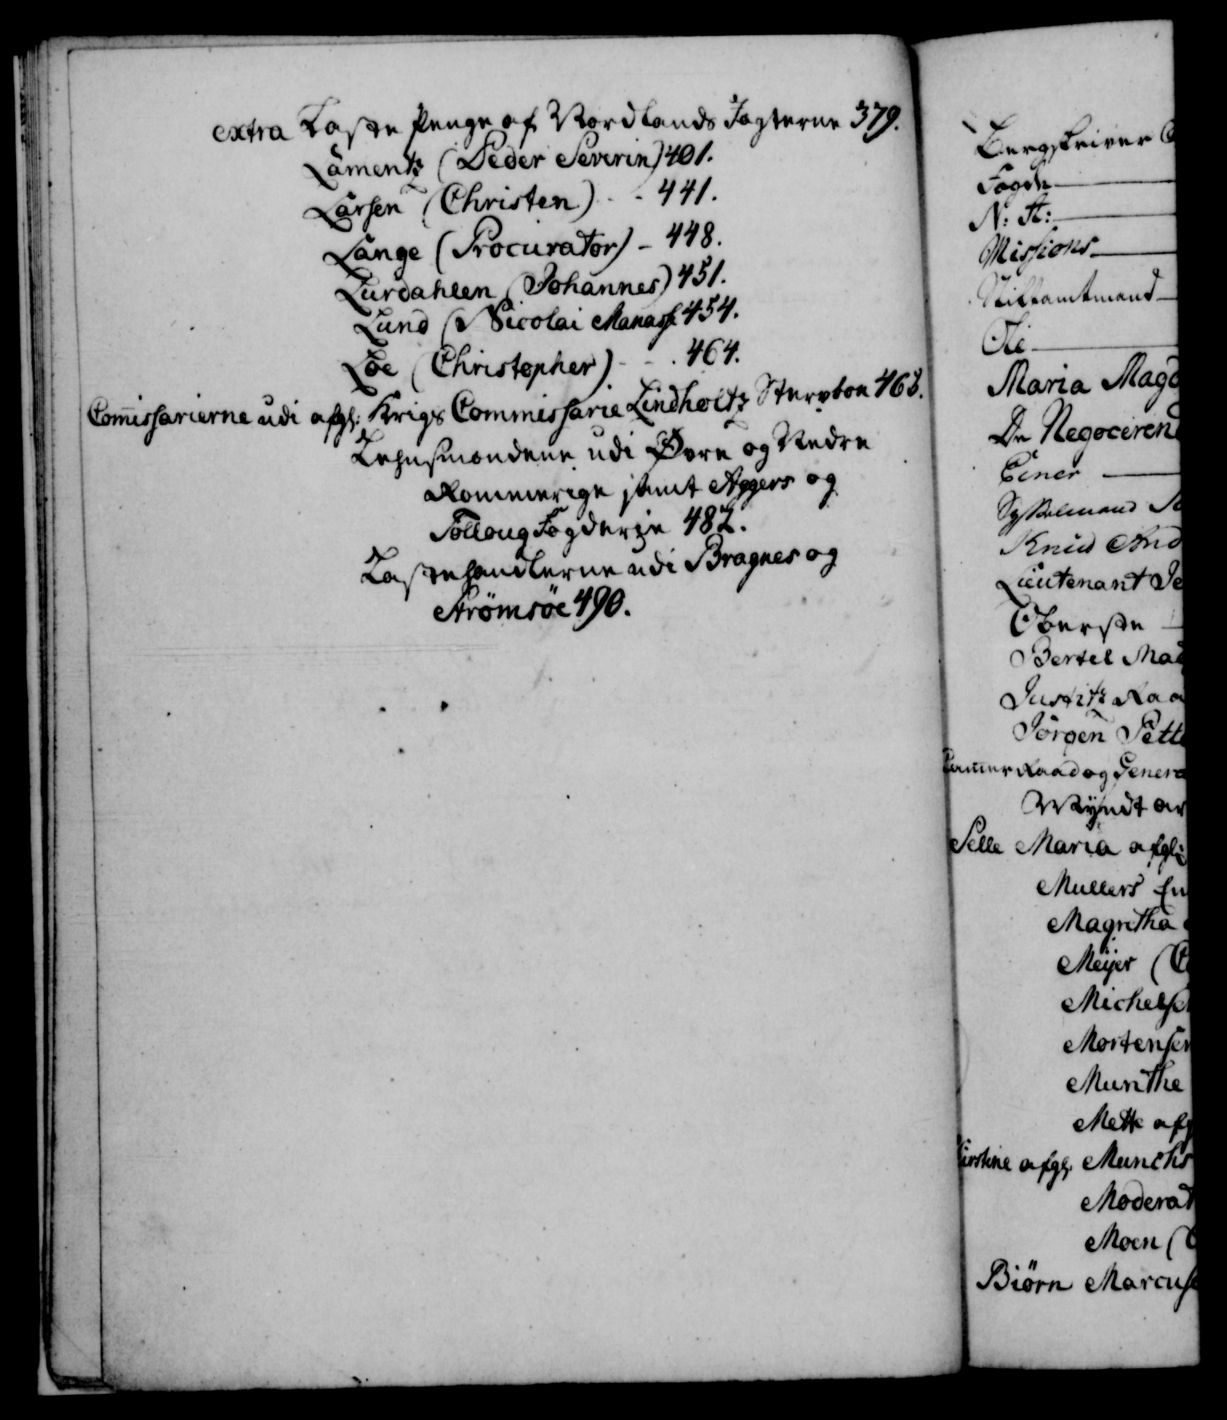 extra Laste Penge af Nordlands Jagterne 379.
Lamentz (Peder Severin) 401.
Larsen (Christen) - - 441.
Lange (Procurator) - 448.
Lurdahlen (Johannes) 451.
Lund (Nicolai Manass 454.
Loe (Christopher) - - 464.
Com̄issarierne udi afgl: Krigs Commissarie Lindholtz Sterboe 468.
Lehnsmændene udi Øvre og Nedre
Rommerige samt Aggers og
Follaug Fogderie 482.
Lastehandlerne udi Bragnes og
Strömsöe 490.
Bergskriver
Fogde
N: St:
Missions
Stiftamtmand
Ole
Maria Magd
De Negocieren
Einer
Sysselmand
Knud And
Lieutenant Je
Oberste
Bertel Mad
Justitz Raa
Jörgen Pett
Cam̄er Raad og Genera
Wÿndt
Selle Maria afgl:
Mullers
Magretha
Meÿer (C
Michelse
Mortensen
Munthe
Mette afg
Kirstine afgl. Munchs
Moderat
Moen (
Biörn Marcus